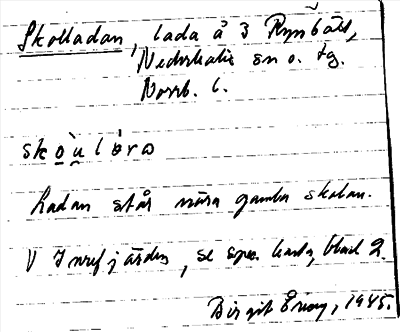 Skolladan, lada å 3 Rymbäck,
Nederkalix sn o. tg.
Norrb. l.
skò̱u̱làra
Ladan står nära gamla skolan.
V Innefjärden, se spec. karta, blad 2.
Birgit Eriks, 1945.